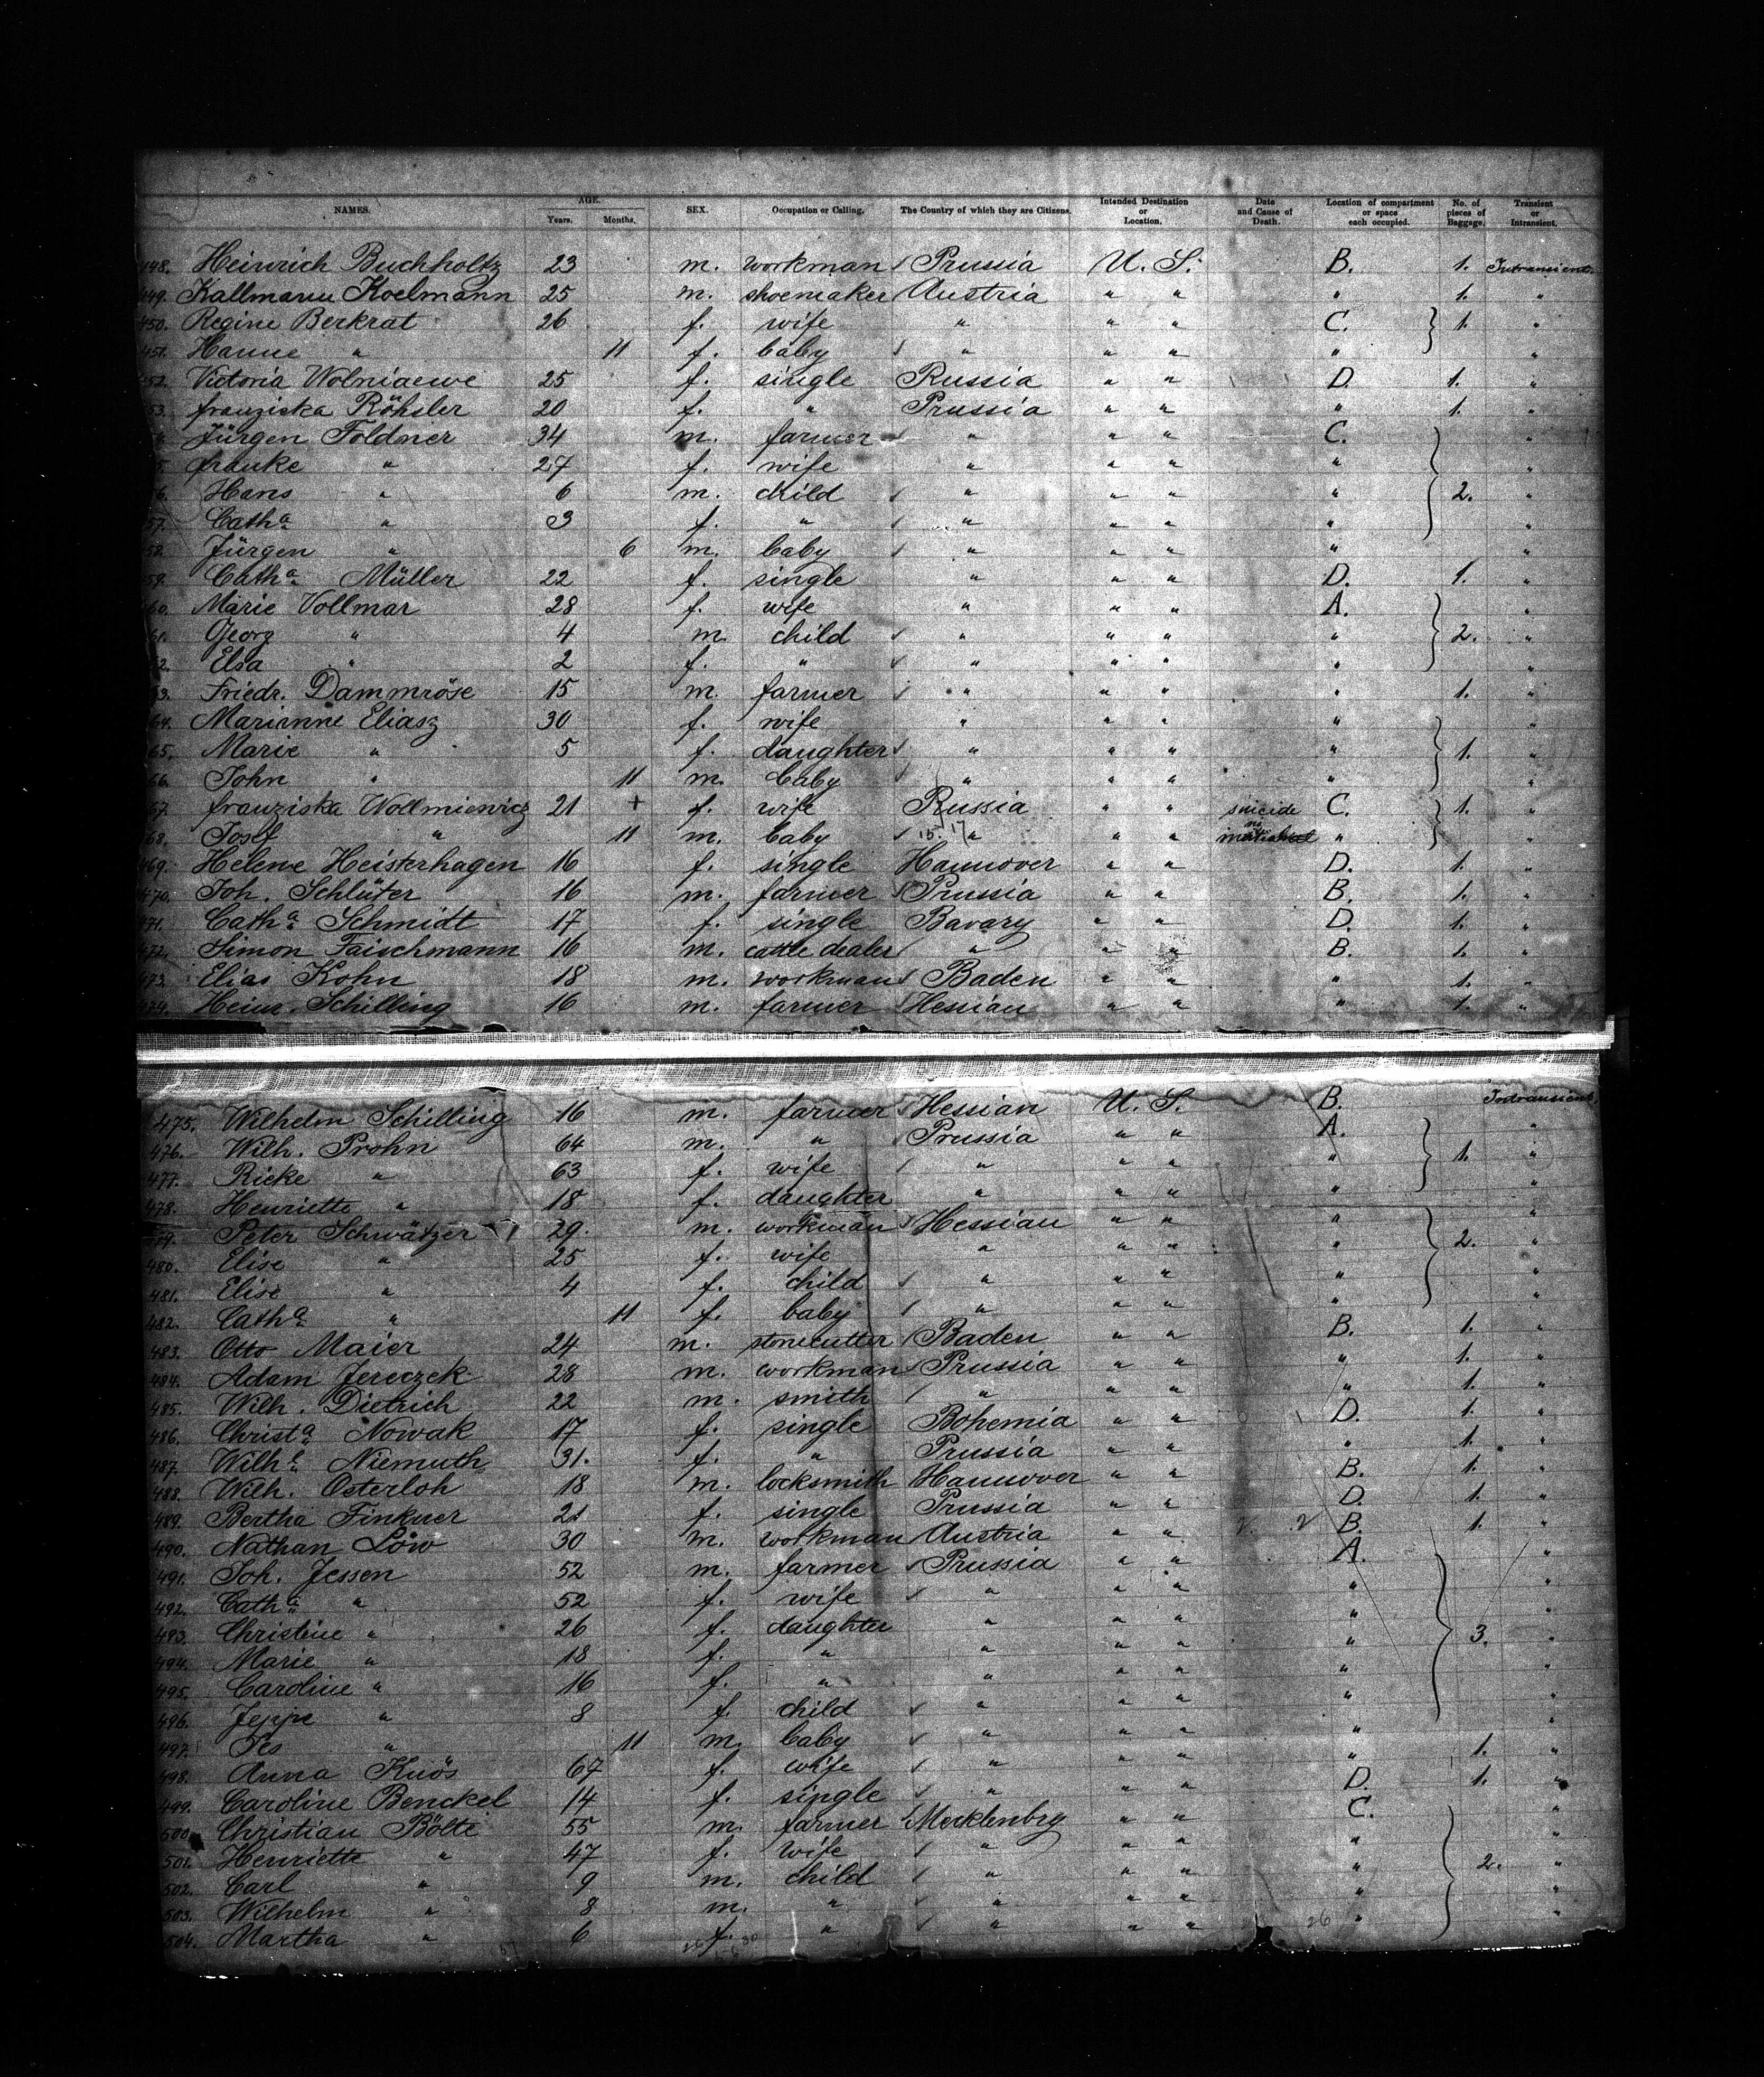 NAMES. AGE. Years. Months. SEX. Occupation or Calling. The Country of which they are Citizens. Intended Destination or Location. Date and Cause of Death. Location of compartment or space each occupied. No. of pieces of Baggage. Transient or Intransient.
448. Heinrich Buchholtz 23 m. workman Prussia U. S. B. 1. Intransient.
449. Kallmann Koelmann 25 m. shoemaker Austria " " " 1. "
450. Regine Berkrat 26 f. wife " " " C. 1. "
451. Hanne " 11 f. baby " " " " "
452. Victoria Wolniaewe 25 f. single Russia " " D. 1. "
53. franziska Röhsler 20 f. " Prussia " " " 1. "
Jürgen Földner 34 m. farmer " " " C. "
5. frauke " 27 f. wife " " " " "
56. Hans " 6 m. child " " " " 2. "
57. Catha " 3 f. " " " " " "
58. Jürgen " 6 m. baby " " " " "
59. Catha Müller 22 f. single " " " D. 1. "
60. Marie Vollmar 28 f. wife " " " A. "
61. Georg " 4 m. child " " " " 2. "
62. Elsa " 2 f. " " " " " "
63. Friedr. Dammröse 15 m. farmer " " " " 1. "
64. Marianne Eliasz 30 f. wife " " " " "
65. Marie " 5 f. daughter " " " " 1. "
66. John " 11 m. baby " " " " "
67. franziska Wollmiewicz 21 + f. wife Russia " " suicide C. 1. "
68. Josef " 11 m. baby " " " "
469. Helene Heisterhagen 16 f. single Hannover " " D. 1. "
470. Joh. Schlüter 16 m. farmer Prussia " " B. 1. "
471. Catha Schmidt 17 f. single Bavary " " D. 1. "
472. Simon Faischmann 16 m. cattle dealer " " " B. 1. "
473. Elias Kohn 18 m. workman Baden " " " 1. "
474. Heinr. Schilling 16 m. farmer Hessian " " " 1. "
475. Wilhelm Schilling 16 m. farmer Hessian U. S. B. Intransient.
476. Wilh. Prohn 64 m. " Prussia " " A. "
477. Ricke " 63 f. wife " " " " 1. "
478. Henriette " 18 f. daughter " " " " "
479. Peter Schwätzer 29. m. workman Hessian " " " "
480. Elise " 25 f. wife " " " " 2. "
481. Elise " 4 f. child " " " " "
482. Catha " 11 f. baby " " " " "
483. Otto Maier 24 m. stonecutter Baden " " B. 1. "
484. Adam Jereczek 28 m. workman Prussia " " " 1. "
485. Wilh. Dietrich 22 m. smith " " " " 1. "
486. Christa Nowak 17 f. single Bohemia " " D. 1. "
487. Wilhe Niemuth 31. f. " Prussia " " " 1. "
488. Wilh. Osterloh 18 m. locksmith Hannover " " B. 1. "
489. Bertha Finkner 21 f. single Prussia " " D. 1. "
490. Nathan Löw 30 m. workman Austria " " B. 1. "
491. Joh. Jessen 52 m. farmer Prussia " " A. "
492. Catha " 52 f. wife " " " " "
493. Christine " 26 f. daughter " " " " 3. "
494. Marie " 18 f. " " " " " "
495. Caroline " 16 f. " " " " " "
496. Jeppe " 8 f. child " " " " "
497. Jes " 11 m. baby " " " " "
498. Anna Knös 67 f. wife " " " " 1. "
499. Caroline Benckel 14 f. single " " " D. 1. "
500. Christian Bölte 55 m. farmer Mecklenbrg " " C. "
501. Henriette " 47 f. wife " " " " "
502. Carl " 9 m. child " " " " 2. "
503. Wilhelm " 8 m. " " " " " "
504. Martha " 6 f. " " " " " "
26